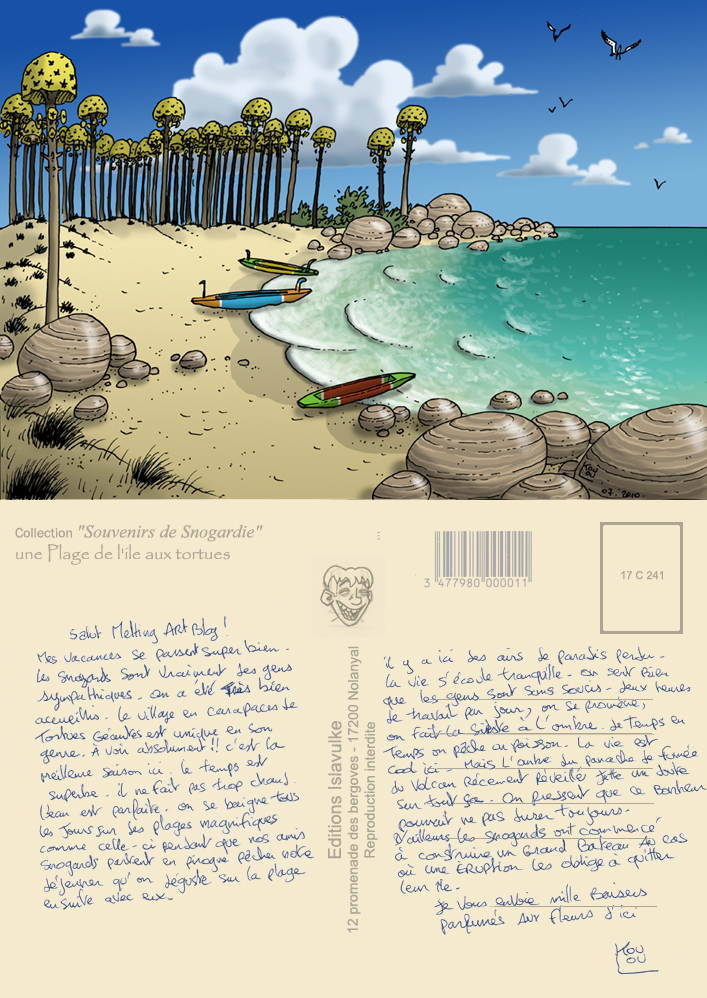 KOU
OU
07. 2010.
Collection "Souvenirs de Snogardie"
une Plage de l'ile aux tortues
3 477980 000011
17 C 241
Salut Melting ART Blog !
Mes vacances se passent super bien.
Les Snogards sont vraiment des gens
sympathiques. On a été très bien
accueillis. le village en carapaces de
Tortues Géantes est unique en son
genre. À voir absolument !! c'est la
meilleure saison ici. le temps est
superbe. il ne fait pas trop chaud.
l'eau est parfaite. on se baigne tous
les jours sur des plages magnifiques
comme celle-ci pendant que nos amis
snogards partent en pirogue pêcher notre
déjeuner qu'on déguste sur la plage
ensuite avec eux.
Editions Islavulke
12 promenade des bergoves - 17200 Nolanyal
Reproduction interdite
il y a ici des airs de paradis perdu.
La vie s'écoule tranquille. on sent bien
que les gens sont sans soucis. deux heures
de travail par jour, on se promène,
on fait la Sieste à L'ombre. de Temps en
Temps on pêche du poisson. La vie est
cool ici. Mais L'ombre du panache de fumée
du Volcan Récement réveillé jette un doute
sur tout ça. On pressent que ce Bonheur
pourrait ne pas durer toujours.
D'ailleurs les snogards ont commencé
à construire un Grand Bateau au cas
où une Eruption les oblige à quitter
leur île.
Je Vous envoie mille Baisers
parfumés aux fleurs d'ici
KOU
OU